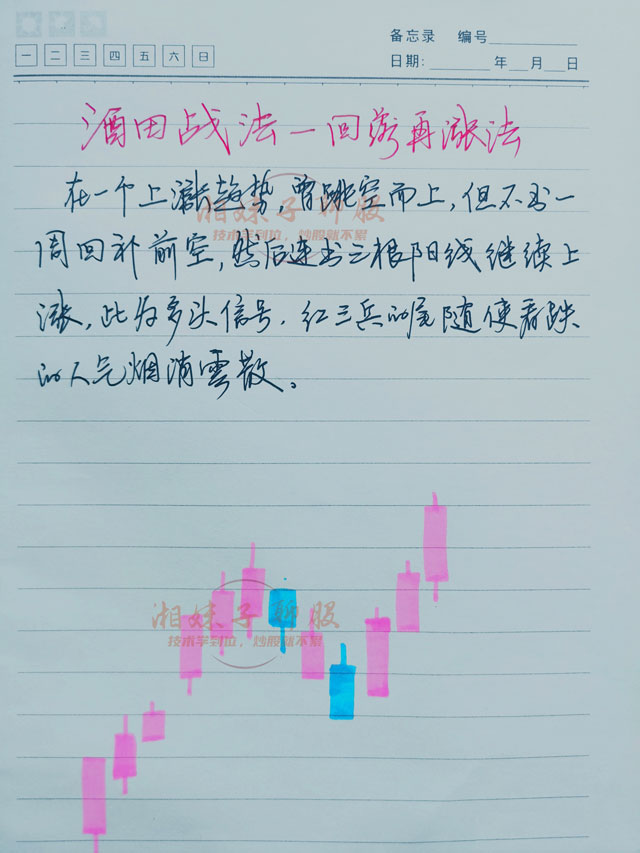 备忘录 编号
一 二 三 四 五 六 日
日期: 年 月 日
酒田战法—回落再涨法
在一个上涨趋势,曾跳空而上,但不出一
周回补前空,然后连出三根阳线继续上
涨,此为多头信号.红三兵的尾随使看跌
的人气烟消雲散。
湘妹子聊股
技术学到位,炒股就不累
湘妹子聊股
技术学到位,炒股就不累